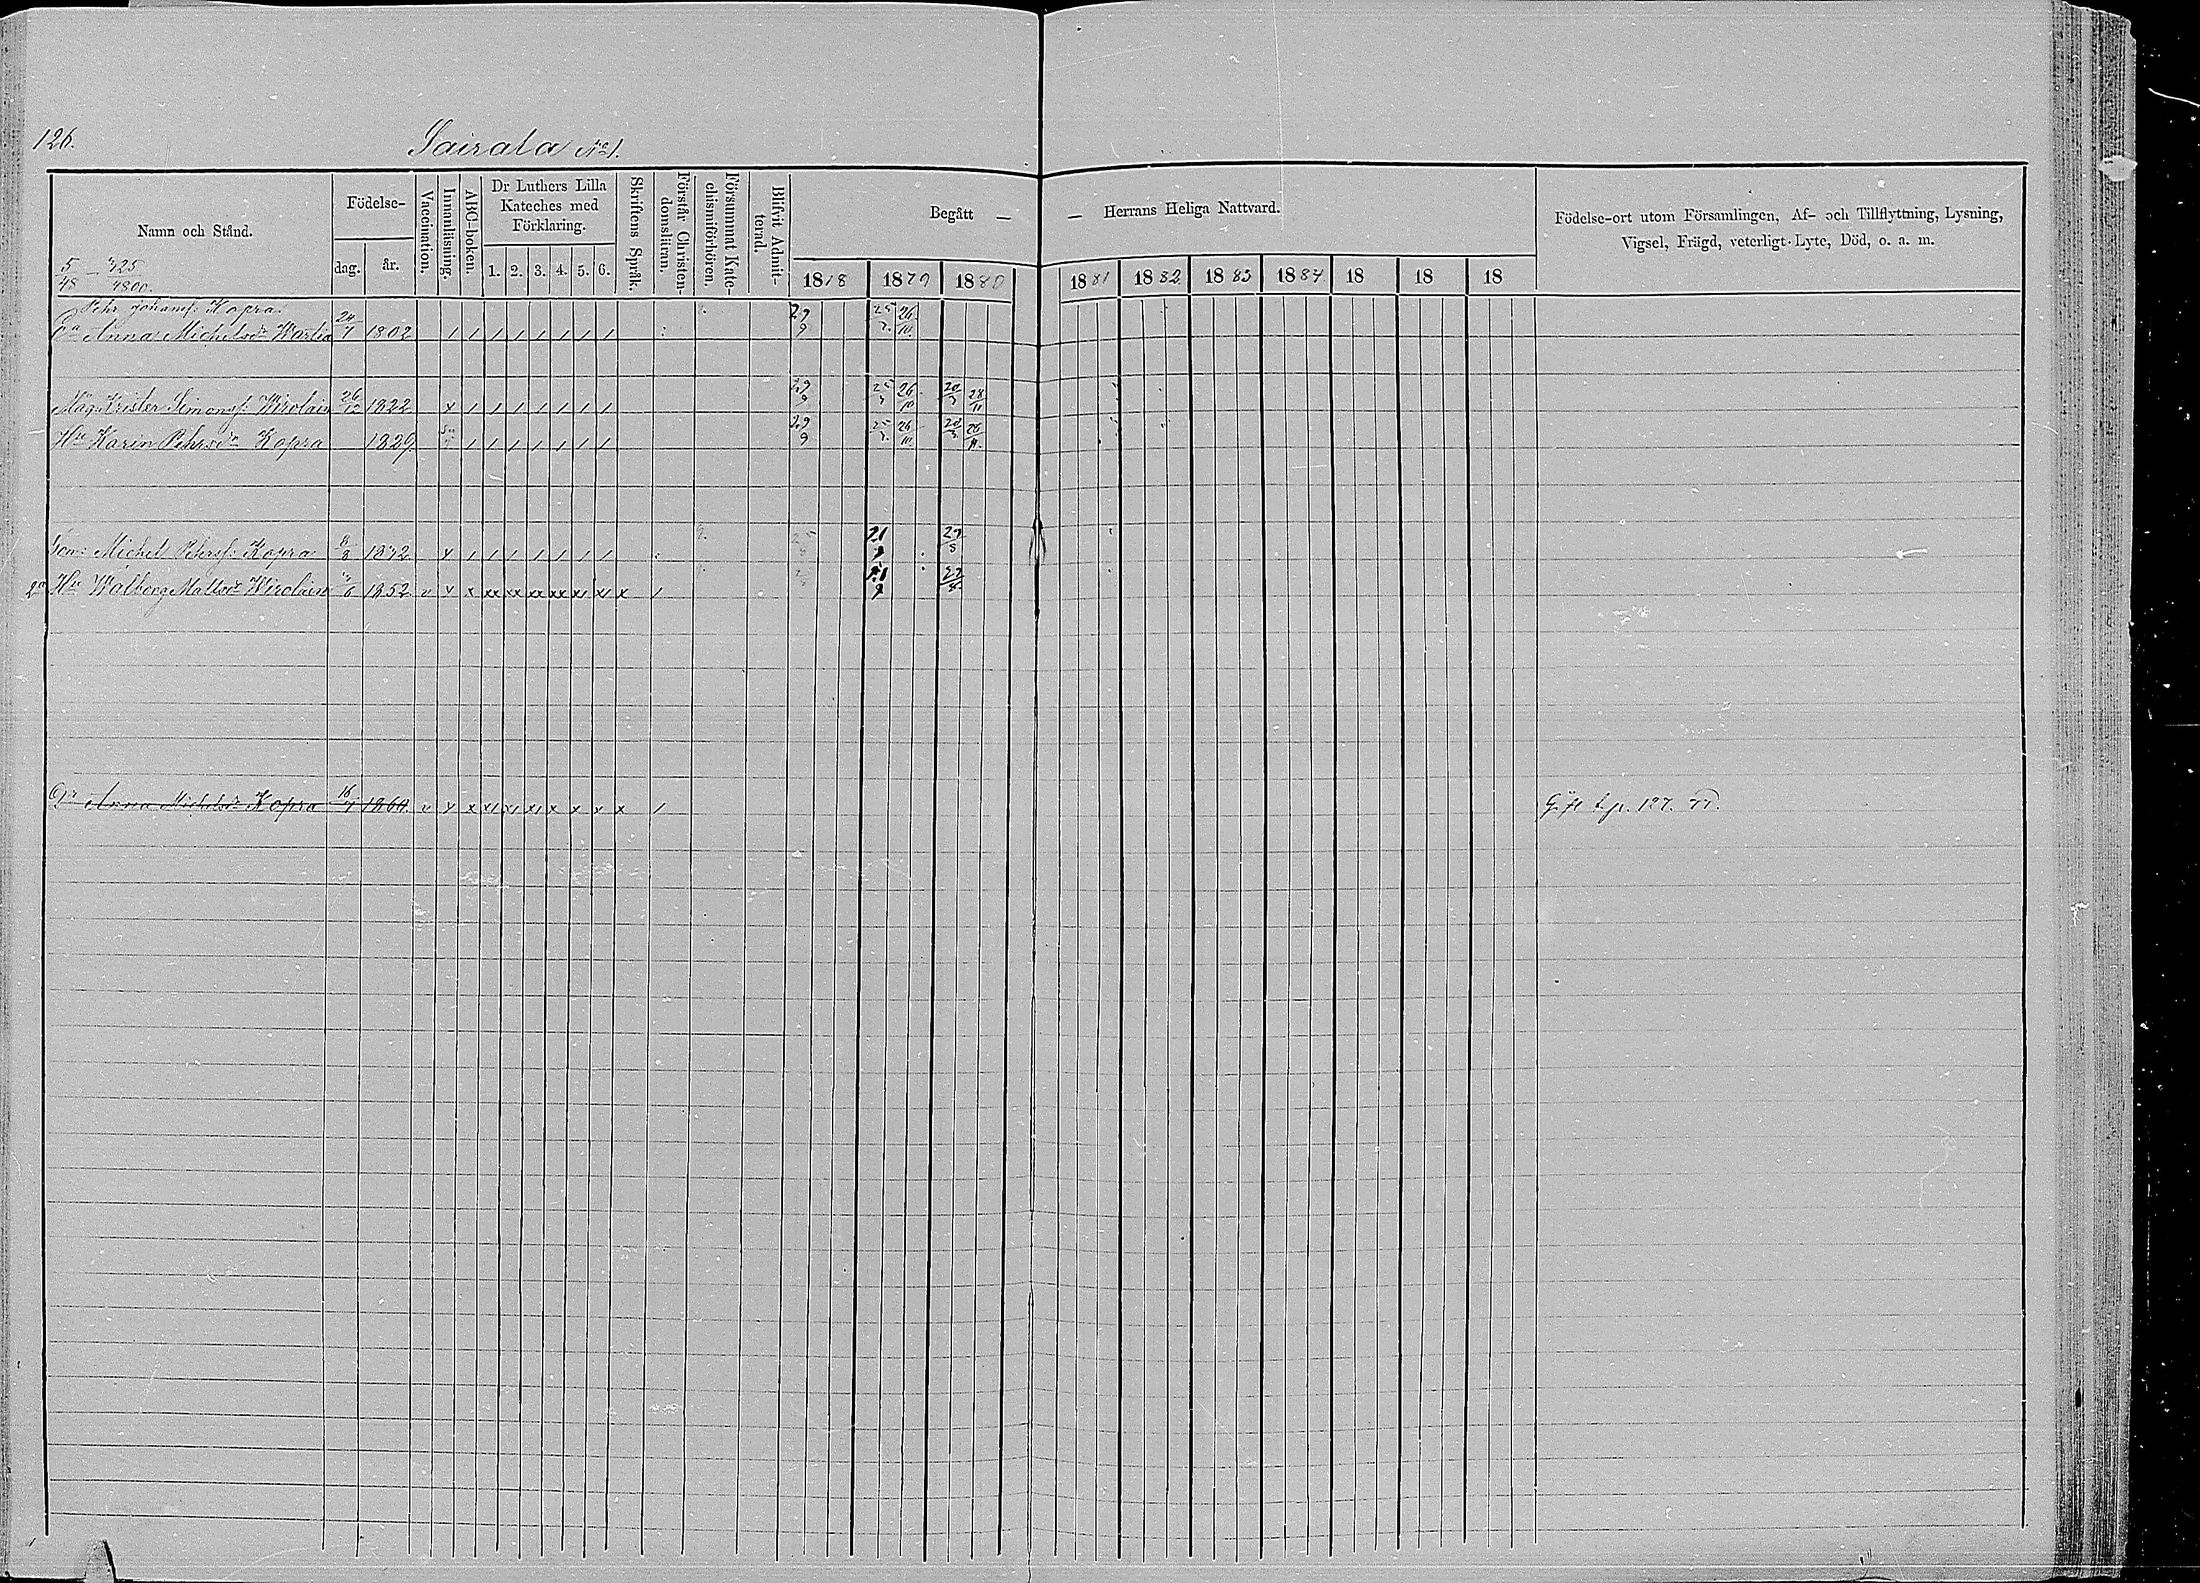 126.
Sairala No 1.
Namn och Stånd.
Födelse-
dag. år.
Vaccination.
Innanläsning.
ABC-boken.
Dr Luthers Lilla
Kateches med
Förklaring.
1. 2. 3. 4. 5. 6.
Skriftens Språk.
Förstår Christen-
domsläran.
Försummat Kate-
chismiförhören.
Blifvit Admit-
terad.
Begått — — Herrans Heliga Nattvard.
1878 1879 1880 1881 1882 1883 1884 18 18 18
Födelse-ort utom Församlingen, Af- och Tillflyttning, Lysning,
Vigsel, Frägd, veterligt Lyte, Död, o. a. m.
5/48
Pehr Johansf: Kopra.
Anna Michelsdr 1802 29/9 26/10
Måg Krister Simonsf: Wirolain 26/12 1822 x 29/9 26/10 20/3 28/11
Hu Karin Pehrsdr Kopra 1829 29/9 26/10 20/3 28/11
Son: Michel Pehrsf: Kopra 8/8 x 21/9 29/8
2a Hu Walborg Mattsdr Wirolain 1852 v x x xx xx xx xx x/ x/ x /
Dr Anna Michelsdr Kopra 16/1 1860 v x x x/ x/ x/ x x x x / Gift t. p. 127.